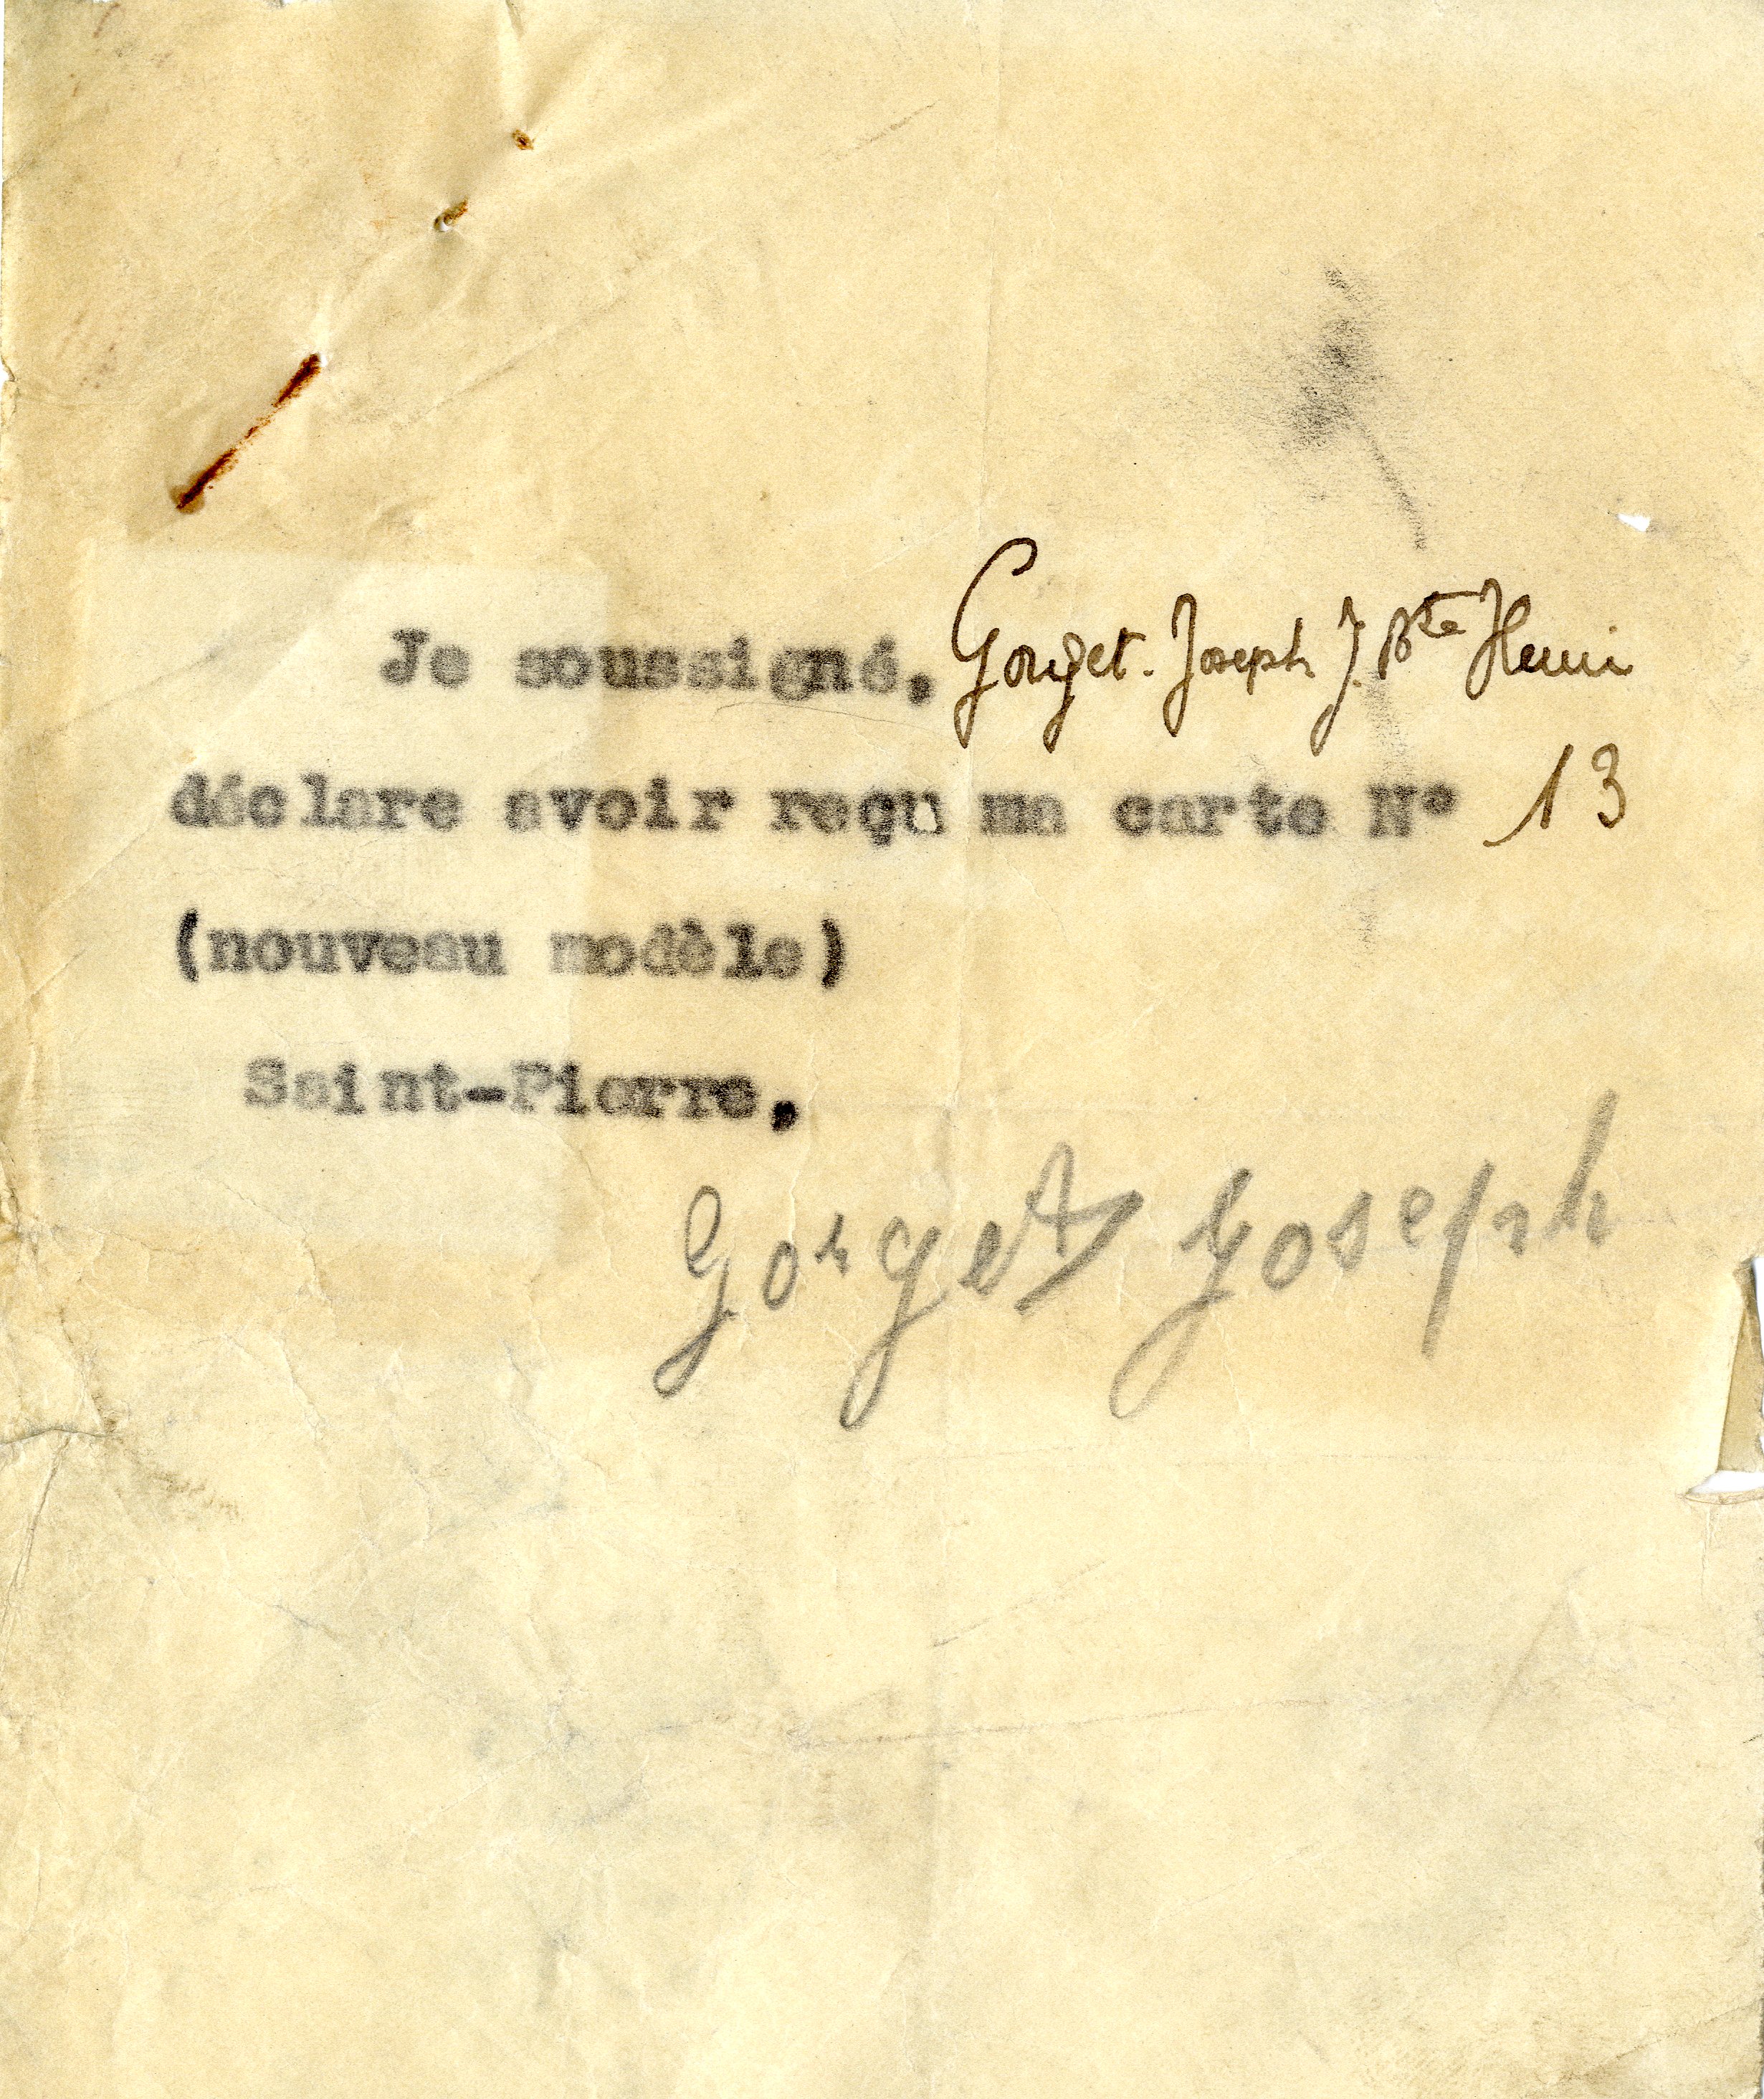 Je soussigné, Gorget. Joseph J. Bte Henri
déclare avoir reçu ma carte N° 13
(nouveau modèle)
Saint-Pierre,
Gorget Joseph